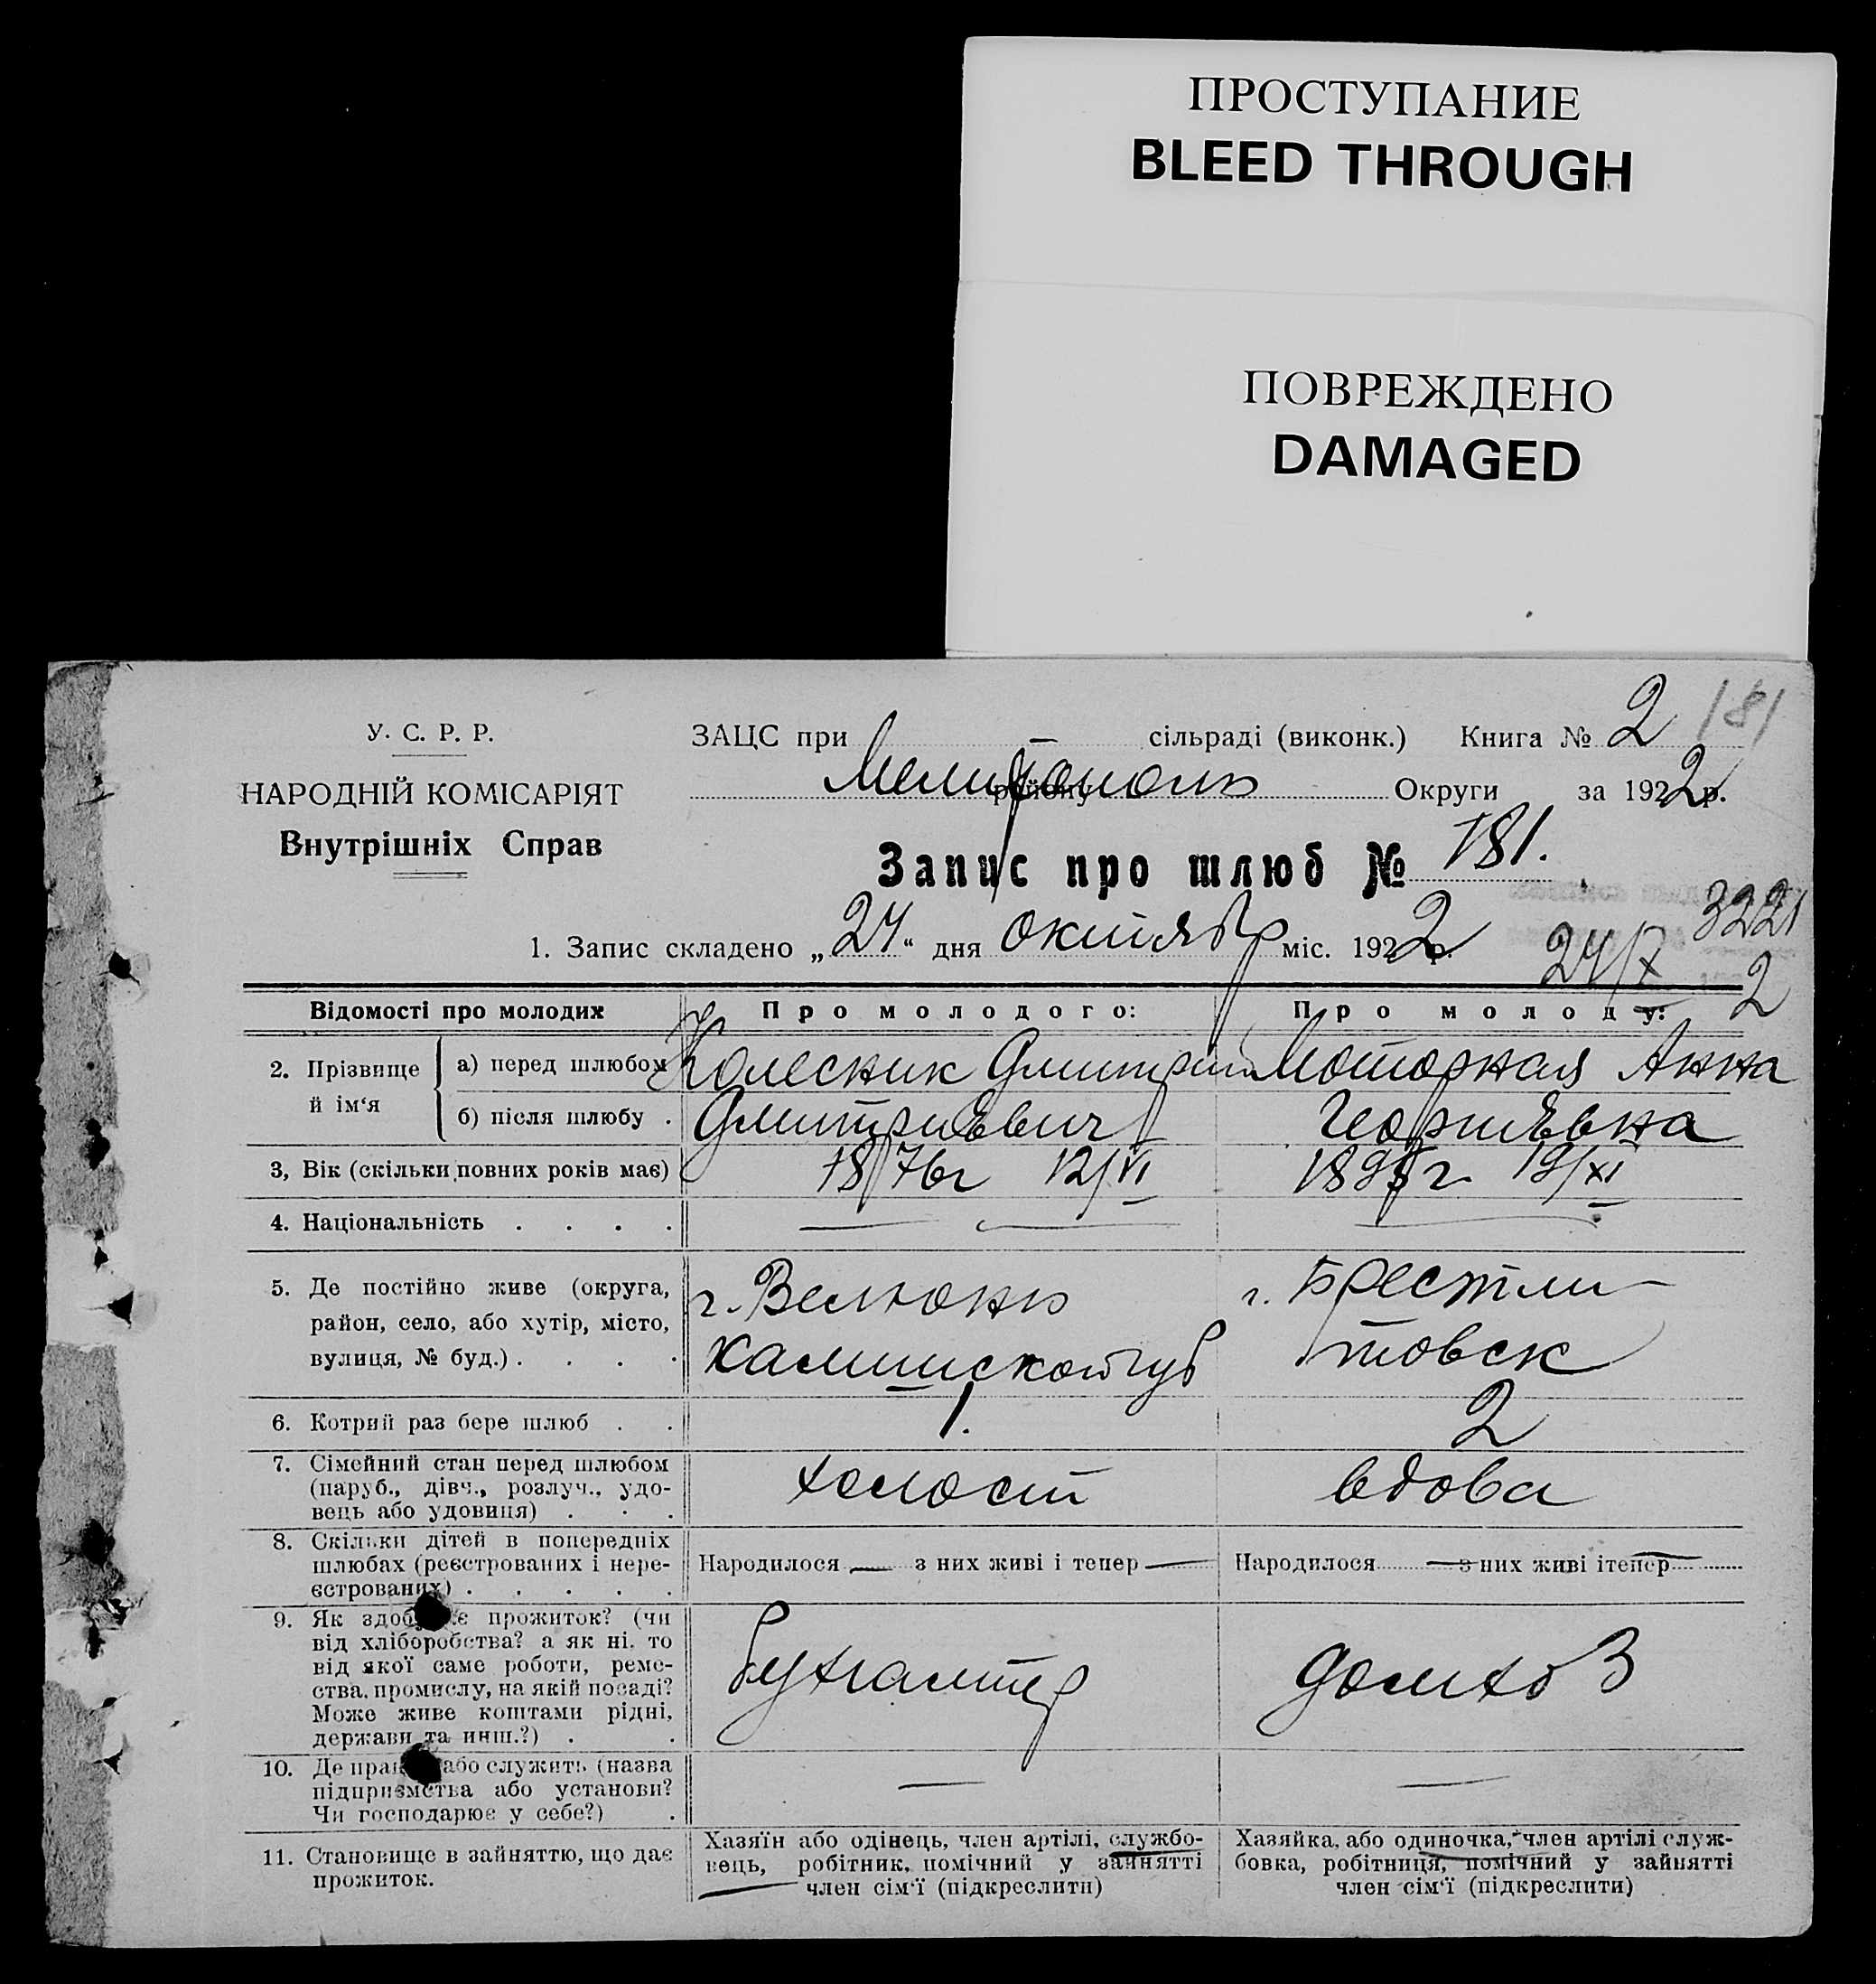 ПРОСТУПАНИЕ
BLEED THROUGH
ПОВРЕЖДЕНО
DAMAGED
181
У. С. Р. Р.
НАРОДНІЙ КОМІСАРІЯТ
Внутрішніх Справ
ЗАЦС при сільраді (виконк.) Книга № 2
Мелитополь району Округи за 1922 р.
Запис про шлюб № 181.
3221
1. Запис складено „24“ дня октября міс. 1922 р.
24/X 2
Відомості про молодих Про молодого: Про молоду:
2. Прізвище й ім‘я а) перед шлюбом Колесник Дмитрий Моторная Анна
б) після шлюбу . Дмитриевич Георгиевна
3, Вік (скільки повних років має) 1876г 12/VI г. 19/XI
4. Національність . . . .
5. Де постійно живе (округа, г. Велюнь г. Брестли-
район, село, або хутір, місто, калишской губ товск
вулиця, № буд.) . . . .
6. Котрий раз бере шлюб . . 1. 2
7. Сімейний стан перед шлюбом холост вдова
(паруб., дівч., розлуч., удо-
вець або удовиця) . . .
8. Скільки дітей в попередніх
шлюбах (реєстрованих і нере- Народилося — з них живі і тепер — Народилося — з них живі ітепер —
єстрованих) . . . . .
9. Як прожиток? (чи
від хліборобства? а як ні, то
від якої саме роботи, реме- бухгалтер домхоз
ства, промислу, на якій посаді?
Може живе коштами рідні,
держави та инш.?) . .
10. Де або служить (назва — —
підприємства або установи?
Чи господарює у себе?) .
11. Становище в зайняттю, що дає
прожиток.
Хазяїн або одінець, член артілі, службо-
вець, робітник, помічний у зайнятті
член сім‘ї (підкреслити)
Хазяйка, або одиночка, член артілі служ-
бовка, робітниця, помічний у зайнятті
член сім‘ї (підкреслити)